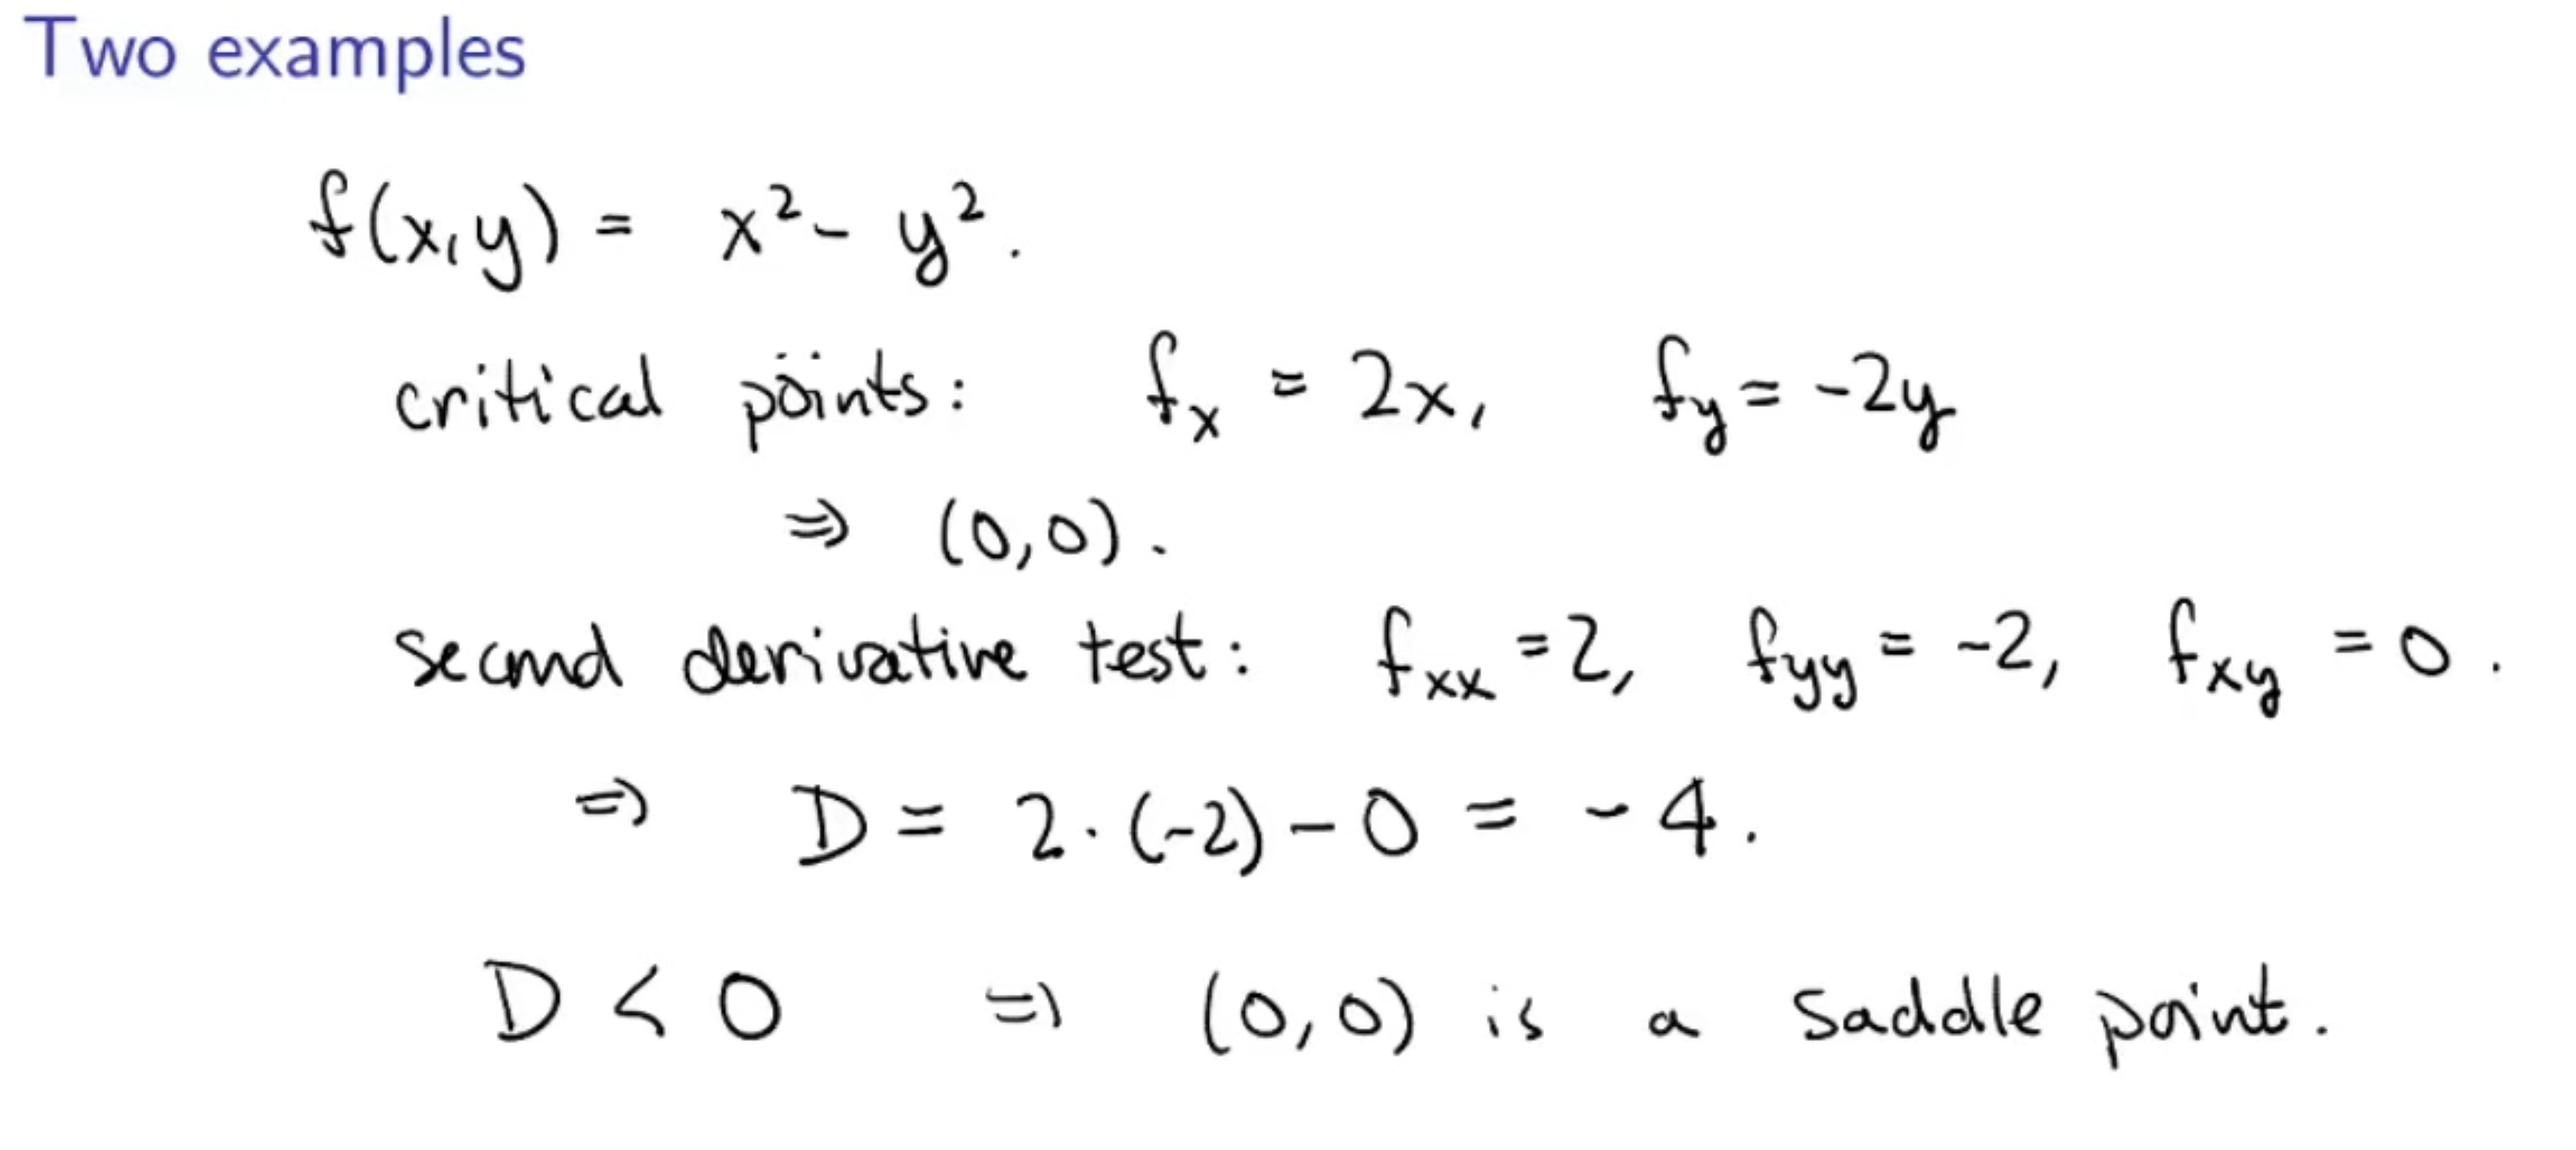 Two examples
f(x,y) = x² - y².
critical points: fₓ = 2x, f_y = -2y
⇒ (0,0).
second derivative test: fₓₓ = 2, f_yy = -2, f_xy = 0.
⇒ D = 2·(-2) - 0 = -4.
D < 0 ⇒ (0,0) is a saddle point.